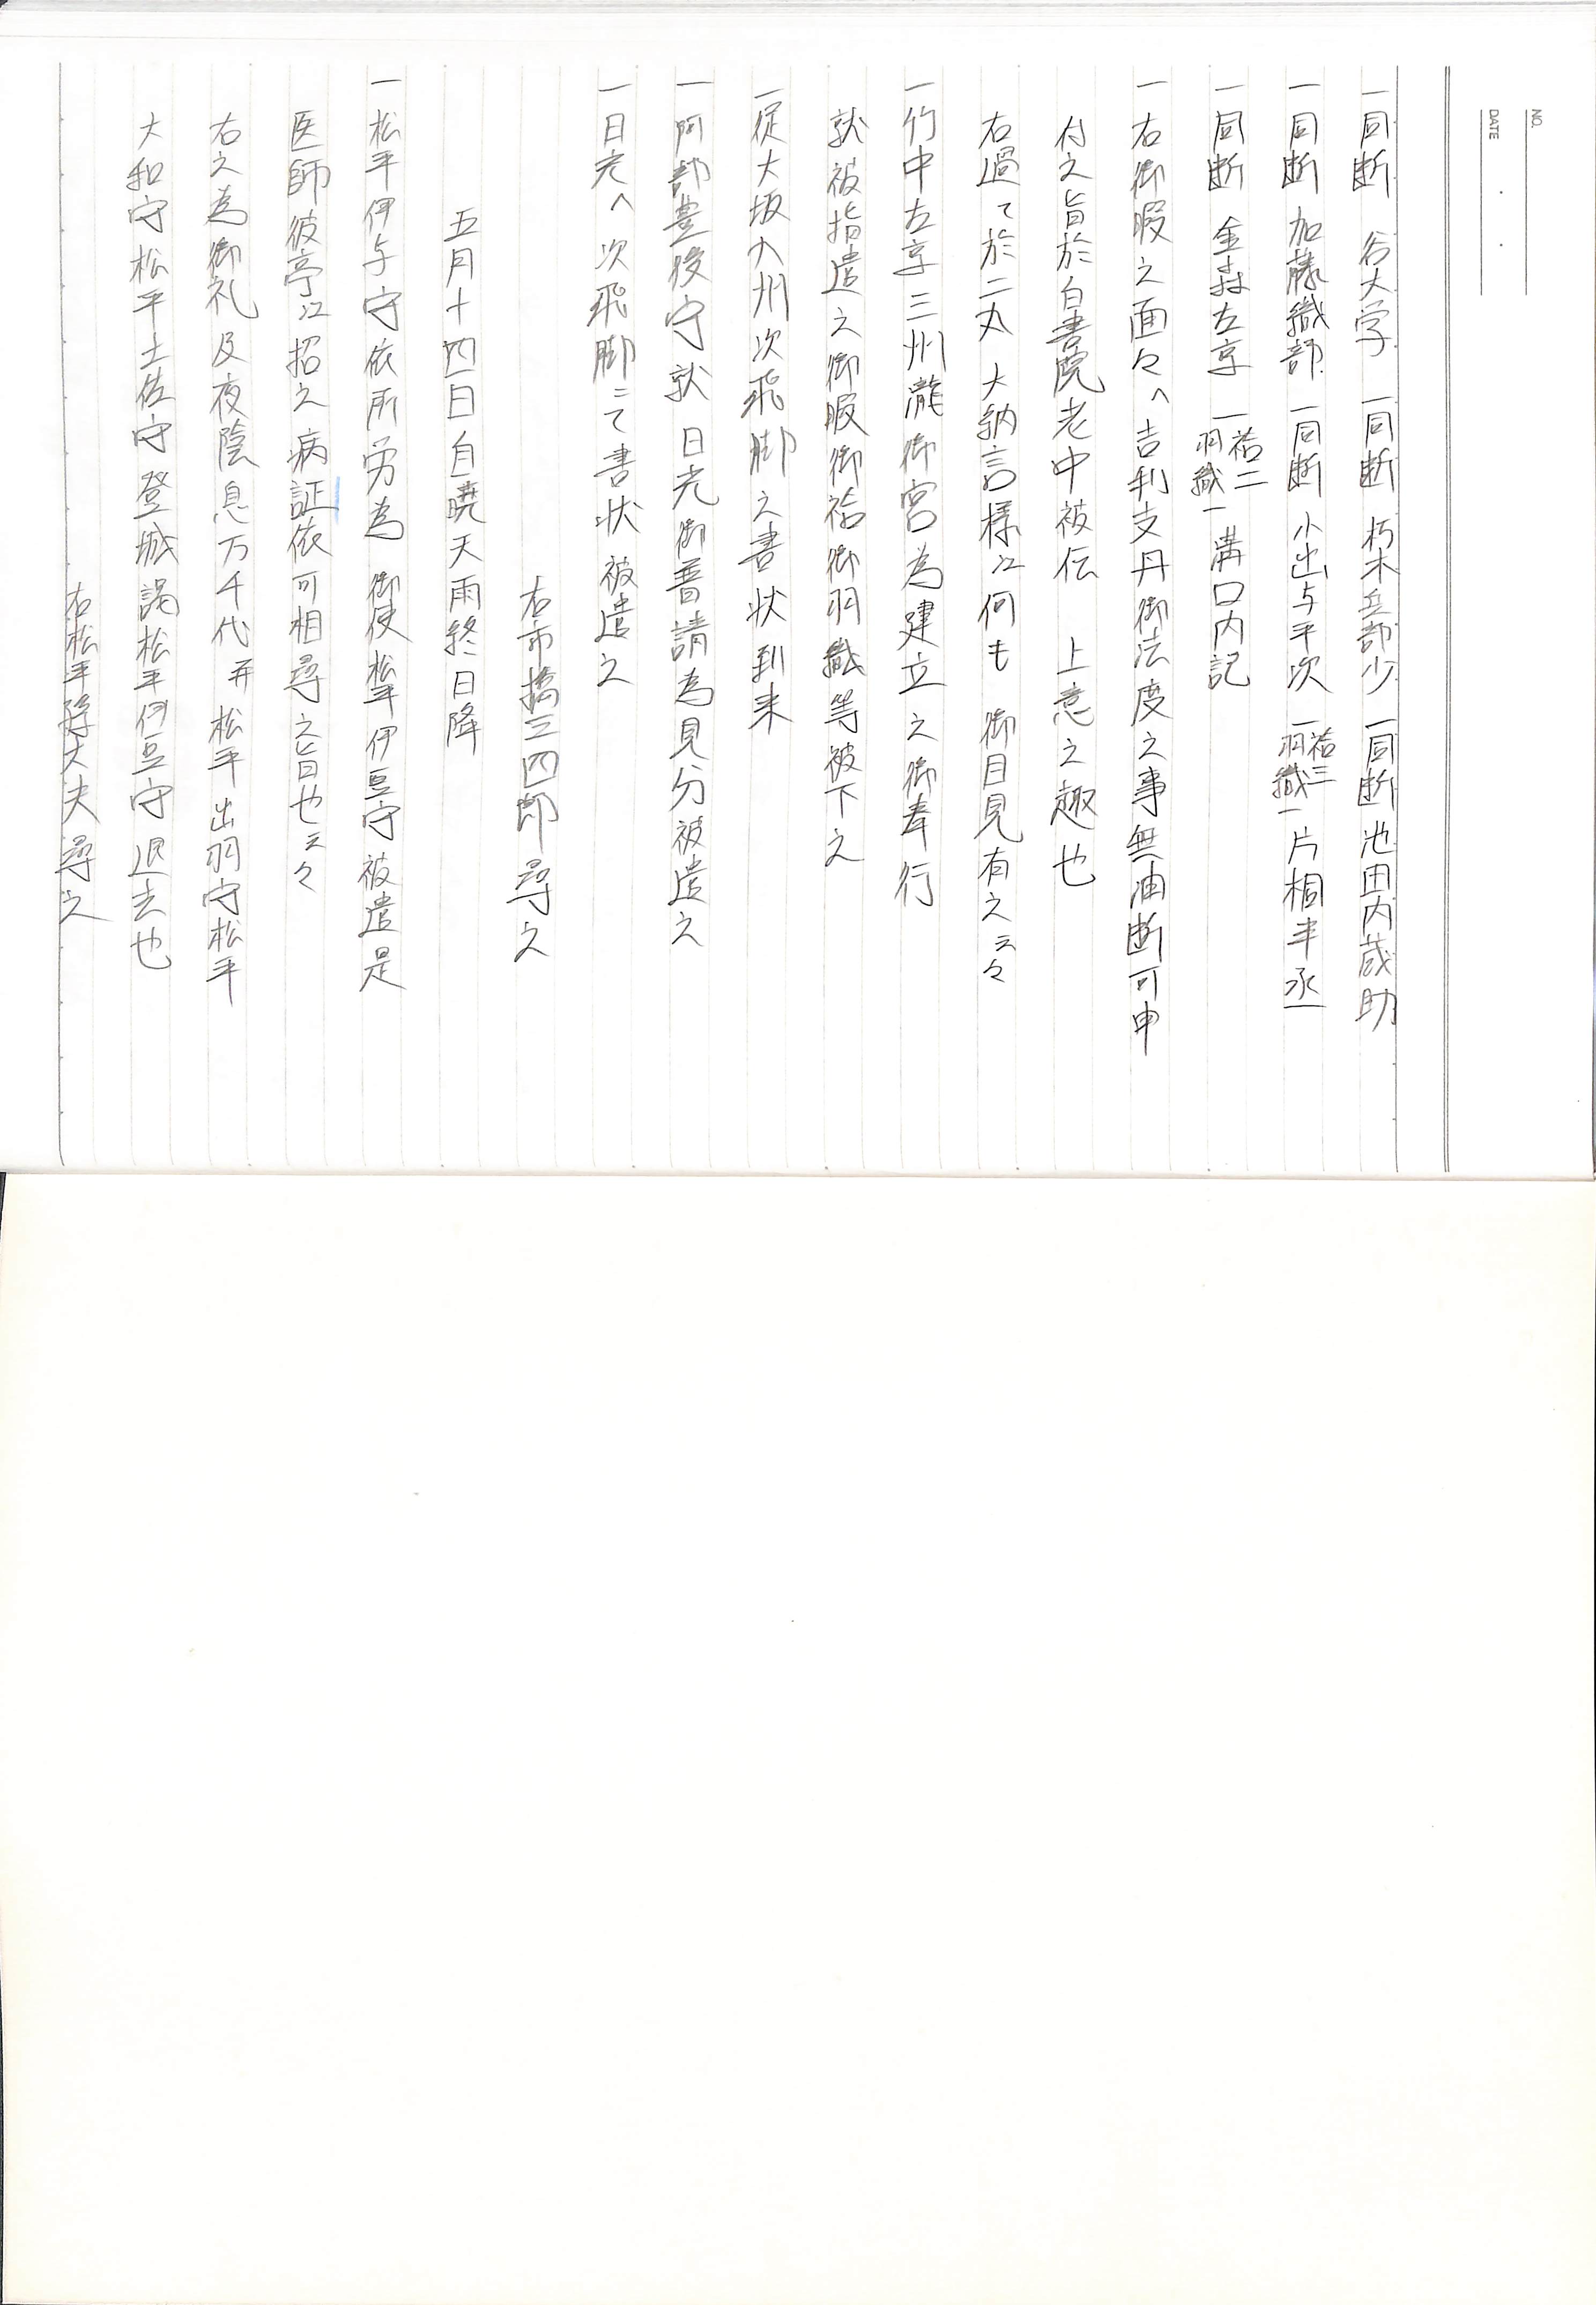 NO.
DATE
一同断 谷大学 一同断 朽木兵部少 一同断 池田内蔵助
一同断 加藤織部 一同断 小出与平次 一袷三羽織一 片桐半丞
一同断 金森左京 一袷二羽織一 溝口内記
一右御暇之面々へ吉利支丹御法度之事無油断可申
付之旨於白書院老中被伝 上意之趣也
右過て於二丸 大納言様江何も 御目見有之云々
一竹中左京三州瀧御宮為建立之御奉行
就被指遣之御暇御袷御羽織等被下之
一従大坂九州次飛脚之書状到来
一阿部豊後守就 日光御普請為見分被遣之
一日光へ次飛脚ニて書状被遣之
右市橋三四郎尋之
五月十四日自暁天雨終日降
一松平伊与守依所労為 御使松平伊豆守被遣是
医師彼亭江招之病証依可相尋之旨也云々
右之為御礼及夜陰息万千代并松平出羽守松平
大和守松平土佐守登城謁松平伊豆守退去也
右松平隼大夫尋之